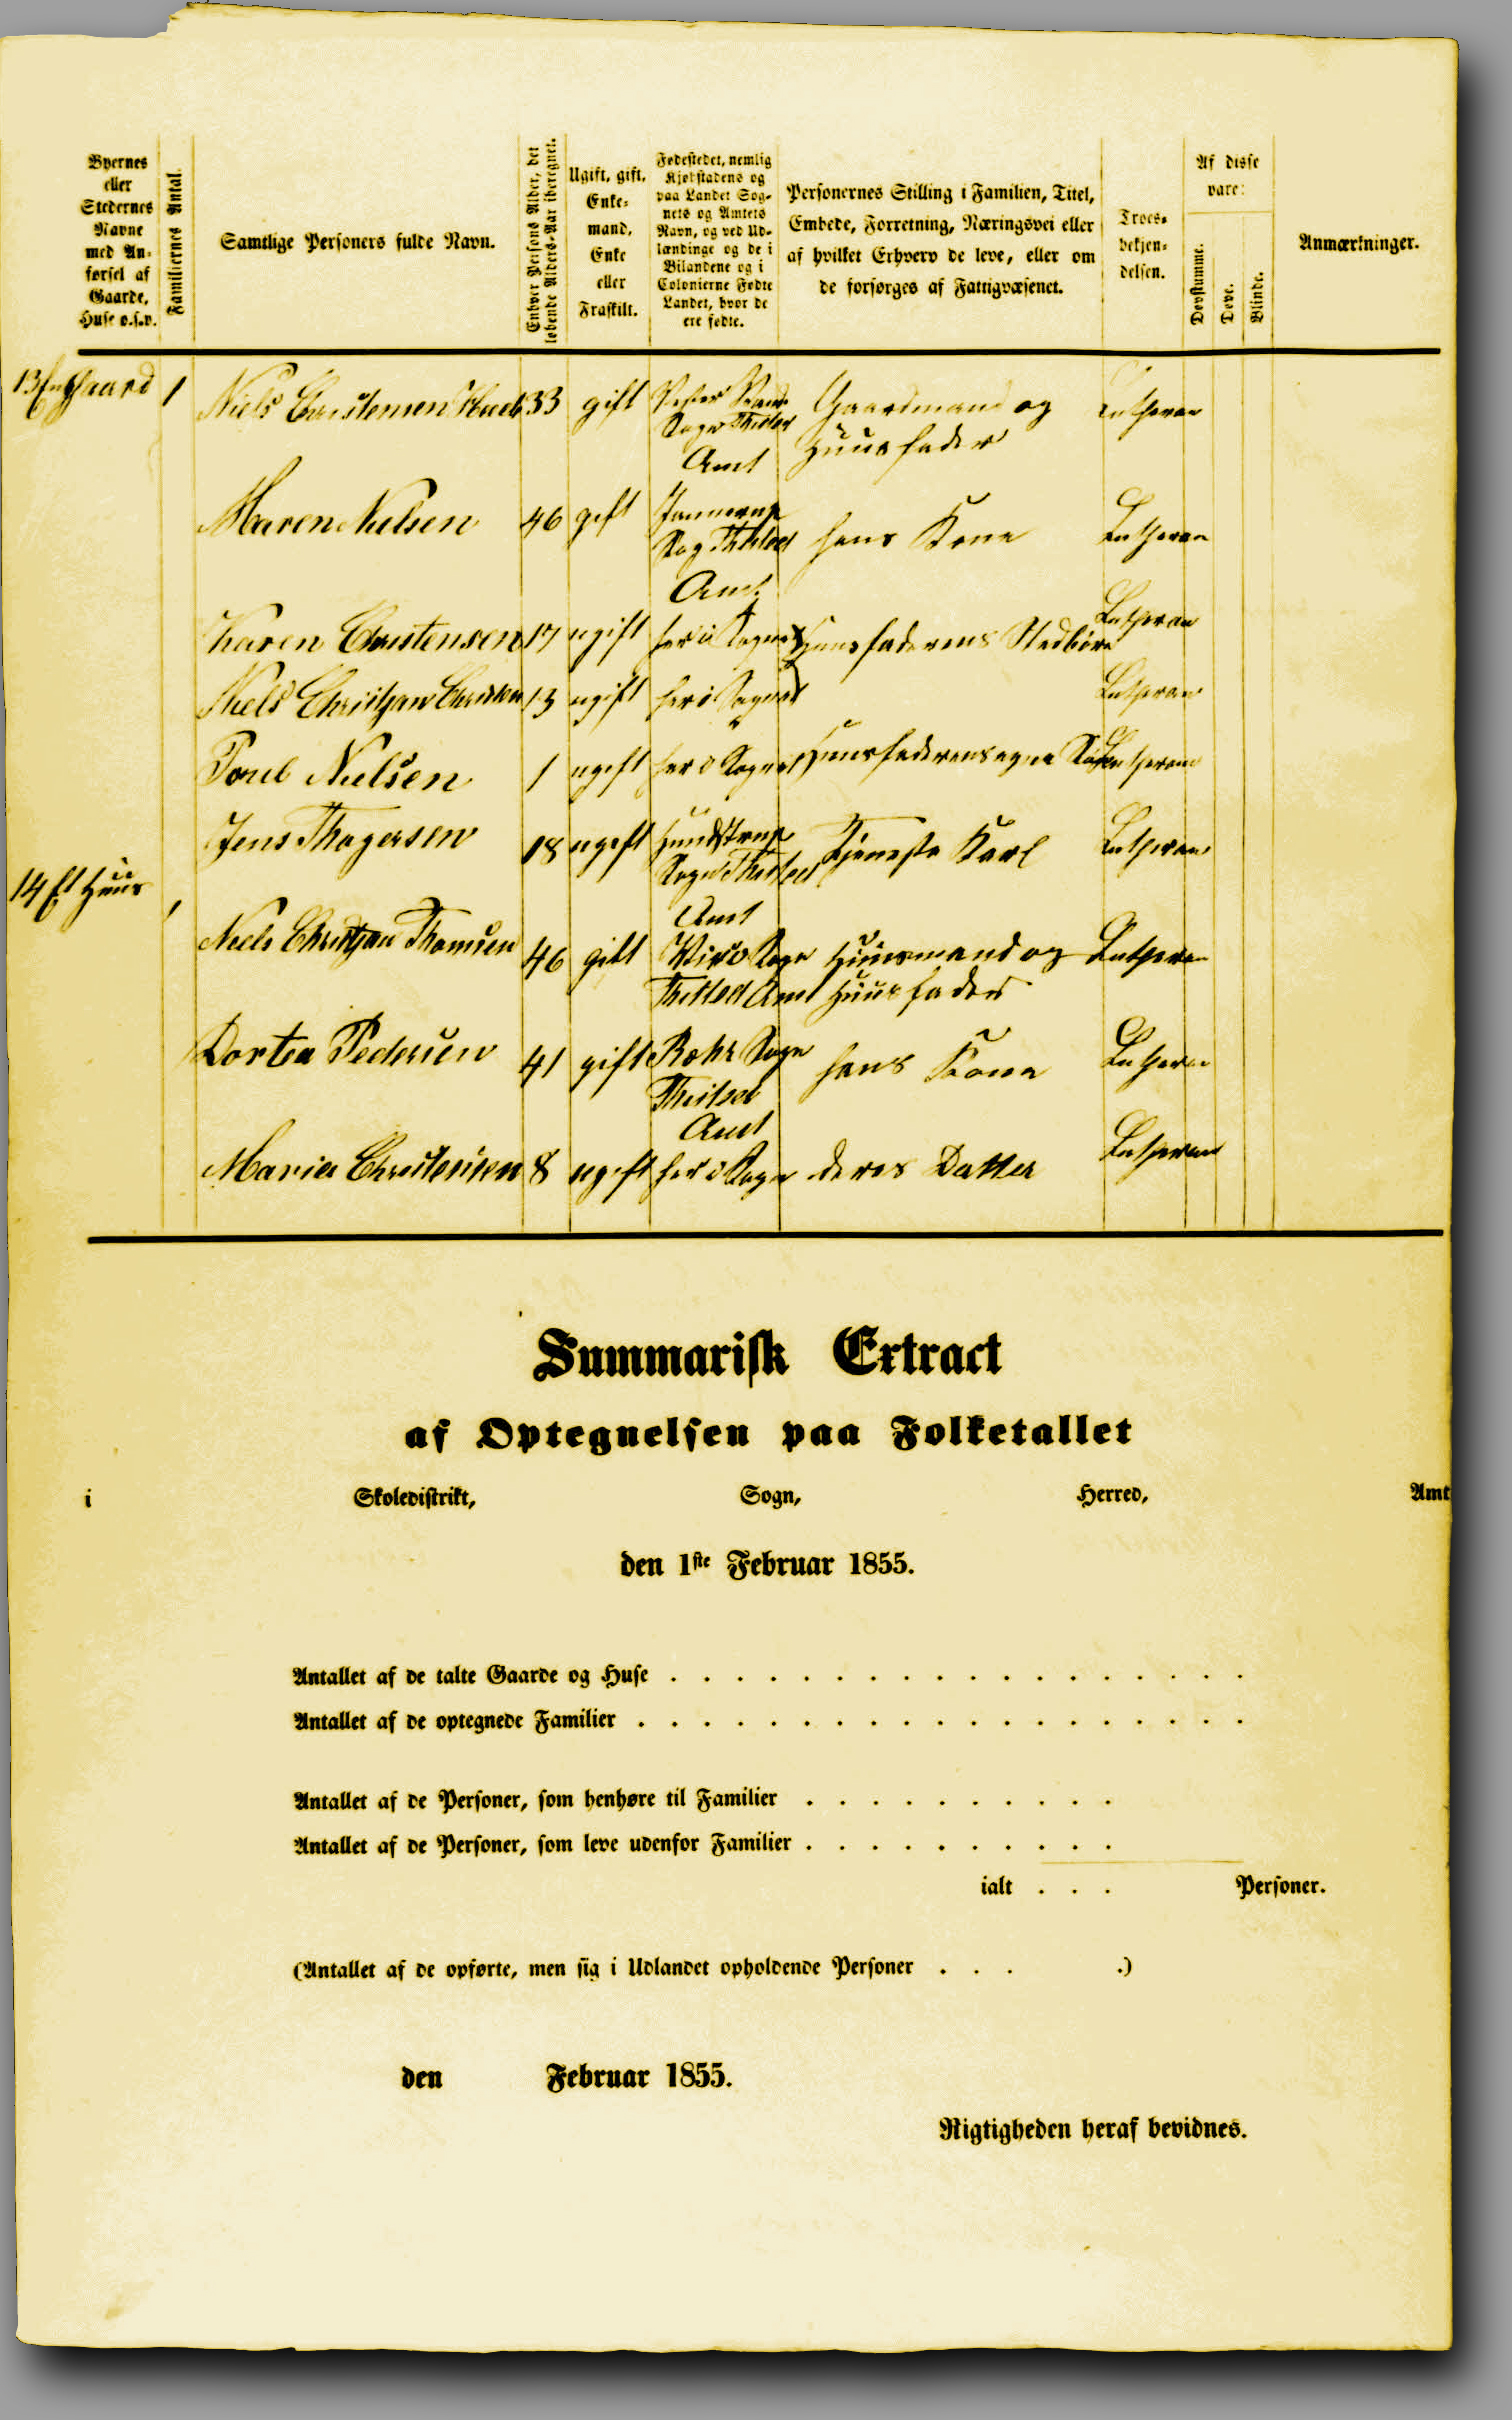 Byernes
eller
Stedernes
Navne
med An-
førsel af
Gaarde,
Huse o.s.v.
Familiernes Antal.
Samtlige Personers fulde Navn.
Enhver Persons Alder, det
løbende Alders-Aar iberegnet.
Ugift, gift,
Enke-
mand,
Enke
eller
Fraskilt.
Fødestedet, nemlig
Kjøbstadens og
paa Landet Sog-
nets og Amtets
Navn, og ved Ud-
lændinge og de i
Bilandene og i
Colonierne Fødte
Landet, hvor de
ere fødte.
Personernes Stilling i Familien, Titel,
Embede, Forretning, Næringsvei eller
af hvilket Erhverv de leve, eller om
de forsørges af Fattigvæsenet.
Troes-
bekjen-
delsen.
Af disse
vare:
Døvstumme.
Døve.
Blinde.
Anmærkninger.
13 En Gaard 1 Niels Christensen 33 gift Gaardmand og Lutheran
Sogn Thisted Huusfader
Amt
Maren Nielsen 46 gift Jannerup hans Kone Lutheran
Sog Thisted
Amt
Karen Christensen 17 ugift her i Sognet Huusfaderens Stedbörn Lutheran
Niels Christjan Christen 13 ugift her i Sognet Lutheran
Poul Nielsen 1 ugift her i Sognet Huusfaderens egne Lutheran
Jens Thøgersen 18 ugift Hundstrup Tjeneste Karl Lutheran
Sogn Thisted
Amt
14 Et Huus 1 Niels Christjan Thomsen 46 gift Sogn Huusmand og Lutheran
Thisted Amt Huusfader
Dortea Pedersen 41 gift Sogn hans Kone Lutheran
Thisted
Amt
Maria Christensen 8 ugift her i Sogn deres Datter Lutheran
Summarisk Extract
af Optegnelsen paa Folketallet
i Skoledistrikt, Sogn, Herred, Amt
den 1ste Februar 1855.
Antallet af de talte Gaarde og Huse . . . . . . . . . . . . . . . . . .
Antallet af de optegnede Familier . . . . . . . . . . . . . . . . . . .
Antallet af de Personer, som henhøre til Familier . . . . . . . . . .
Antallet af de Personer, som leve udenfor Familier . . . . . . . . . .
ialt . . . Personer.
(Antallet af de opførte, men sig i Udlandet opholdende Personer . . . .)
den Februar 1855.
Rigtigheden heraf bevidnes.